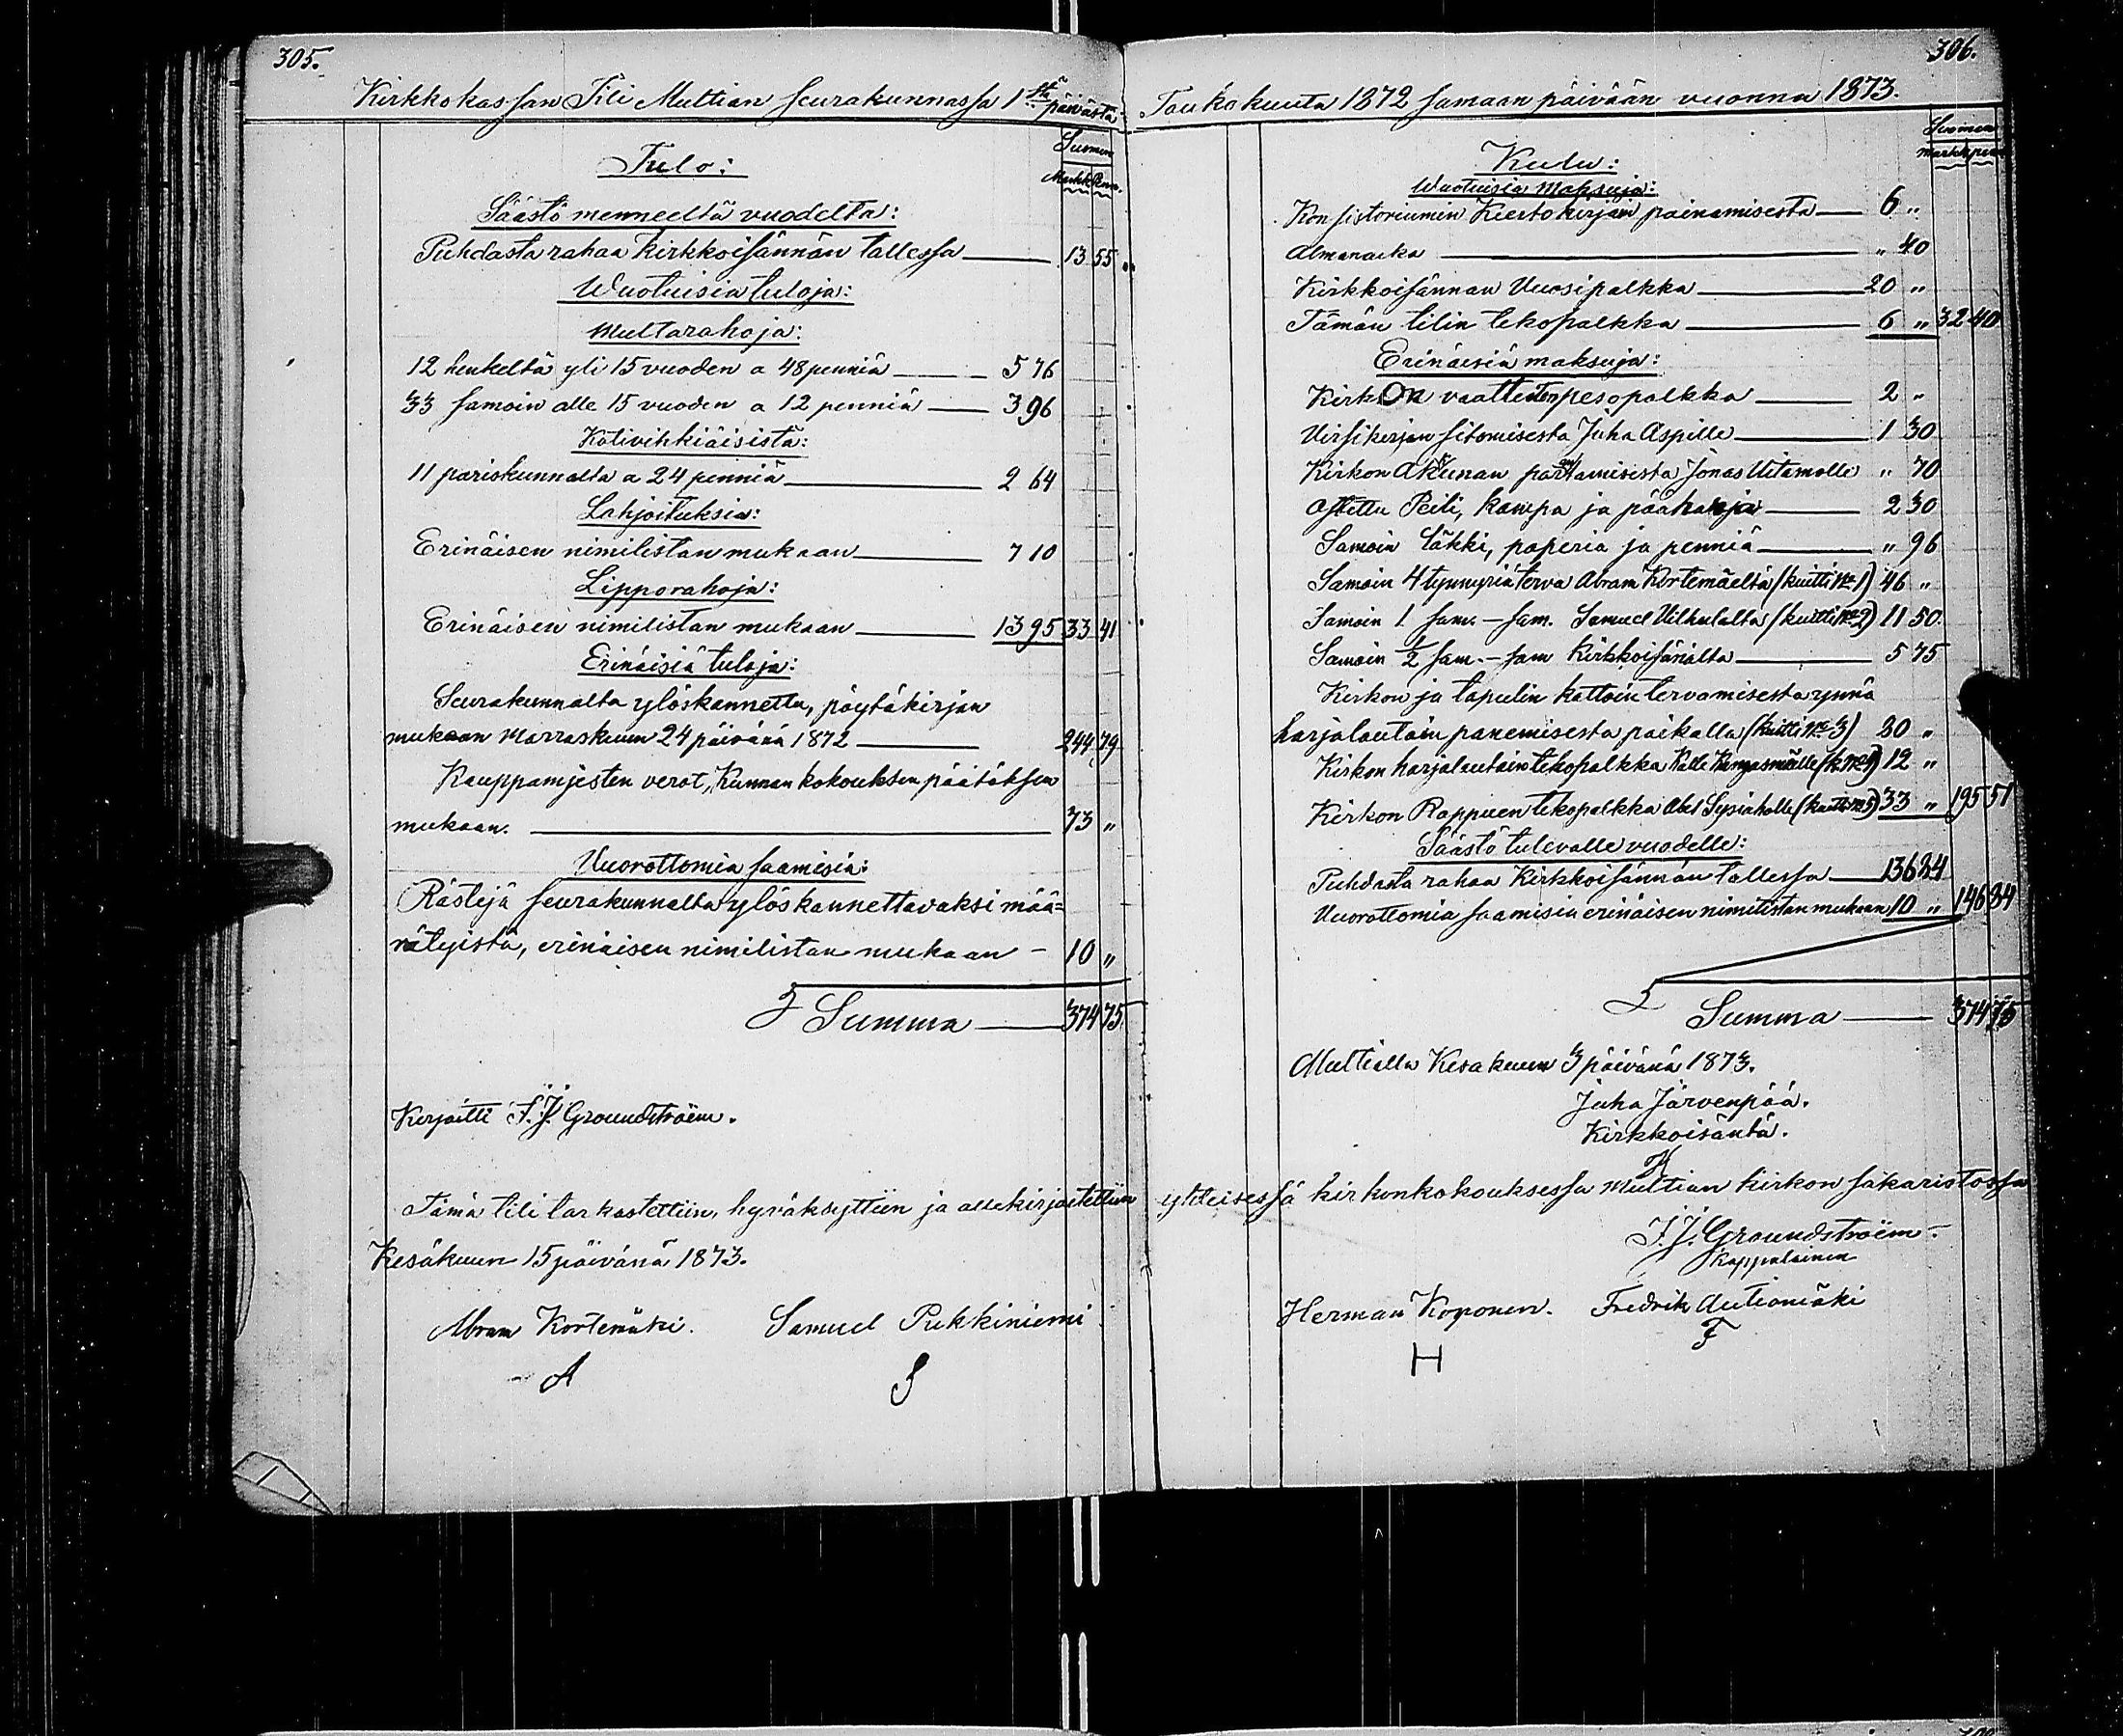 305.
Kirkkokassan Tili Multian seurakunnassa 1stä päivästä
Tulo:
Suomen
Markk. Penn.
Säästö menneeltä vuodelta:
Puhdasta rahaa Kirkkoisännän tallessa 13 55
Wuotuisia tuloja:
Multarahoja:
12 henkeltä yli 15 vuoden a 48 penniä 5 76
33 samoin alle 15 vuoden a 12 penniä 3 96
Kotivihkiäisistä:
11 pariskunnalta a 24 penniä 2 64
Lahjoituksia:
Erinäisen nimilistan mukaan 7 10
Lipporahoja:
Erinäisen nimilistan mukaan 13 95 33 41
Erinäisiä tuloja:
Seurakunnalta ylöskannettu, pöytäkirjan
mukaan Marraskuun 24 päivänä 1872 244 79
Kauppamiesten verot, Kunnan kokouksen päätöksen
mukaan. 73 "
Vuorottomia saamisia:
Rästejä seurakunnalta ylöskannettavaksi mää=
rätyistä, erinäisen nimilistan mukaan 10 "
Summa 374 75
Kirjoitti F. J. Groundstroëm.
Tämä tili tarkastettiin, hyväksyttiin ja allekirjoitettiin
Kesäkuun 15 päivänä 1873.
Abram Kortemäki. Samuel Pukkiniemi
A S
306.
Toukokuuta 1872 samaan päivään vuonna 1873.
Kulu:
Suomen
Markk. penn.
Wuotuisia maksuja:
Konsistoriumin Kiertokirjain painamisesta 6 "
Almanakka " 40
Kirkkoisännän Vuosipalkka 20 "
Tämän tilin tekopalkka 6 " 32 40
Erinäisiä maksuja:
Kirkon vaatteiten pesopalkka 2 "
Virsikirjan sitomisesta Juha Aspille 1 30
Kirkon Akkunan parantamisesta Jonas Uitamolle " 70
Ostettu Peili, kampa ja pääharja 2 30
Samoin läkki, paperia ja penniä " 96
Samoin 4 tynnyriä terva Abram Kortemäeltä (kuitti No 1) 46 "
Samoin 1 sam. - sam. Samuel Vilhulalta (kuitti No 2) 11 50
Samoin 1/2 sam. - sam Kirkkoisänältä 5 75
Kirkon ja tapulin kattoin tervamisesta ynnä
harjalautain panemisesta paikalla (kuitti No 3) 80 "
Kirkon harjalautain tekopalkka Kalle Kangasmäelle (k. No 4) 12 "
Kirkon Rappuen tekopalkka Abel (kuitti No 5) 33 " 195 51
Säästö tulevalle vuodelle:
Puhdasta rahaa Kirkkoisännän tallessa 136 84
Vuorottomia saamisia erinäisen nimilistan mukaan 10 " 146 84
Summa 374 75
Multialla Kesäkuun 3 päivänä 1873.
Juha Järvenpää.
Kirkkoisäntä.
yhteisessä kirkonkokouksessa Multian kirkon sakaristossa
F. J. Groundstroëm.
Kappalainen
Herman Koponen. Fredrik Autiomäki
H F